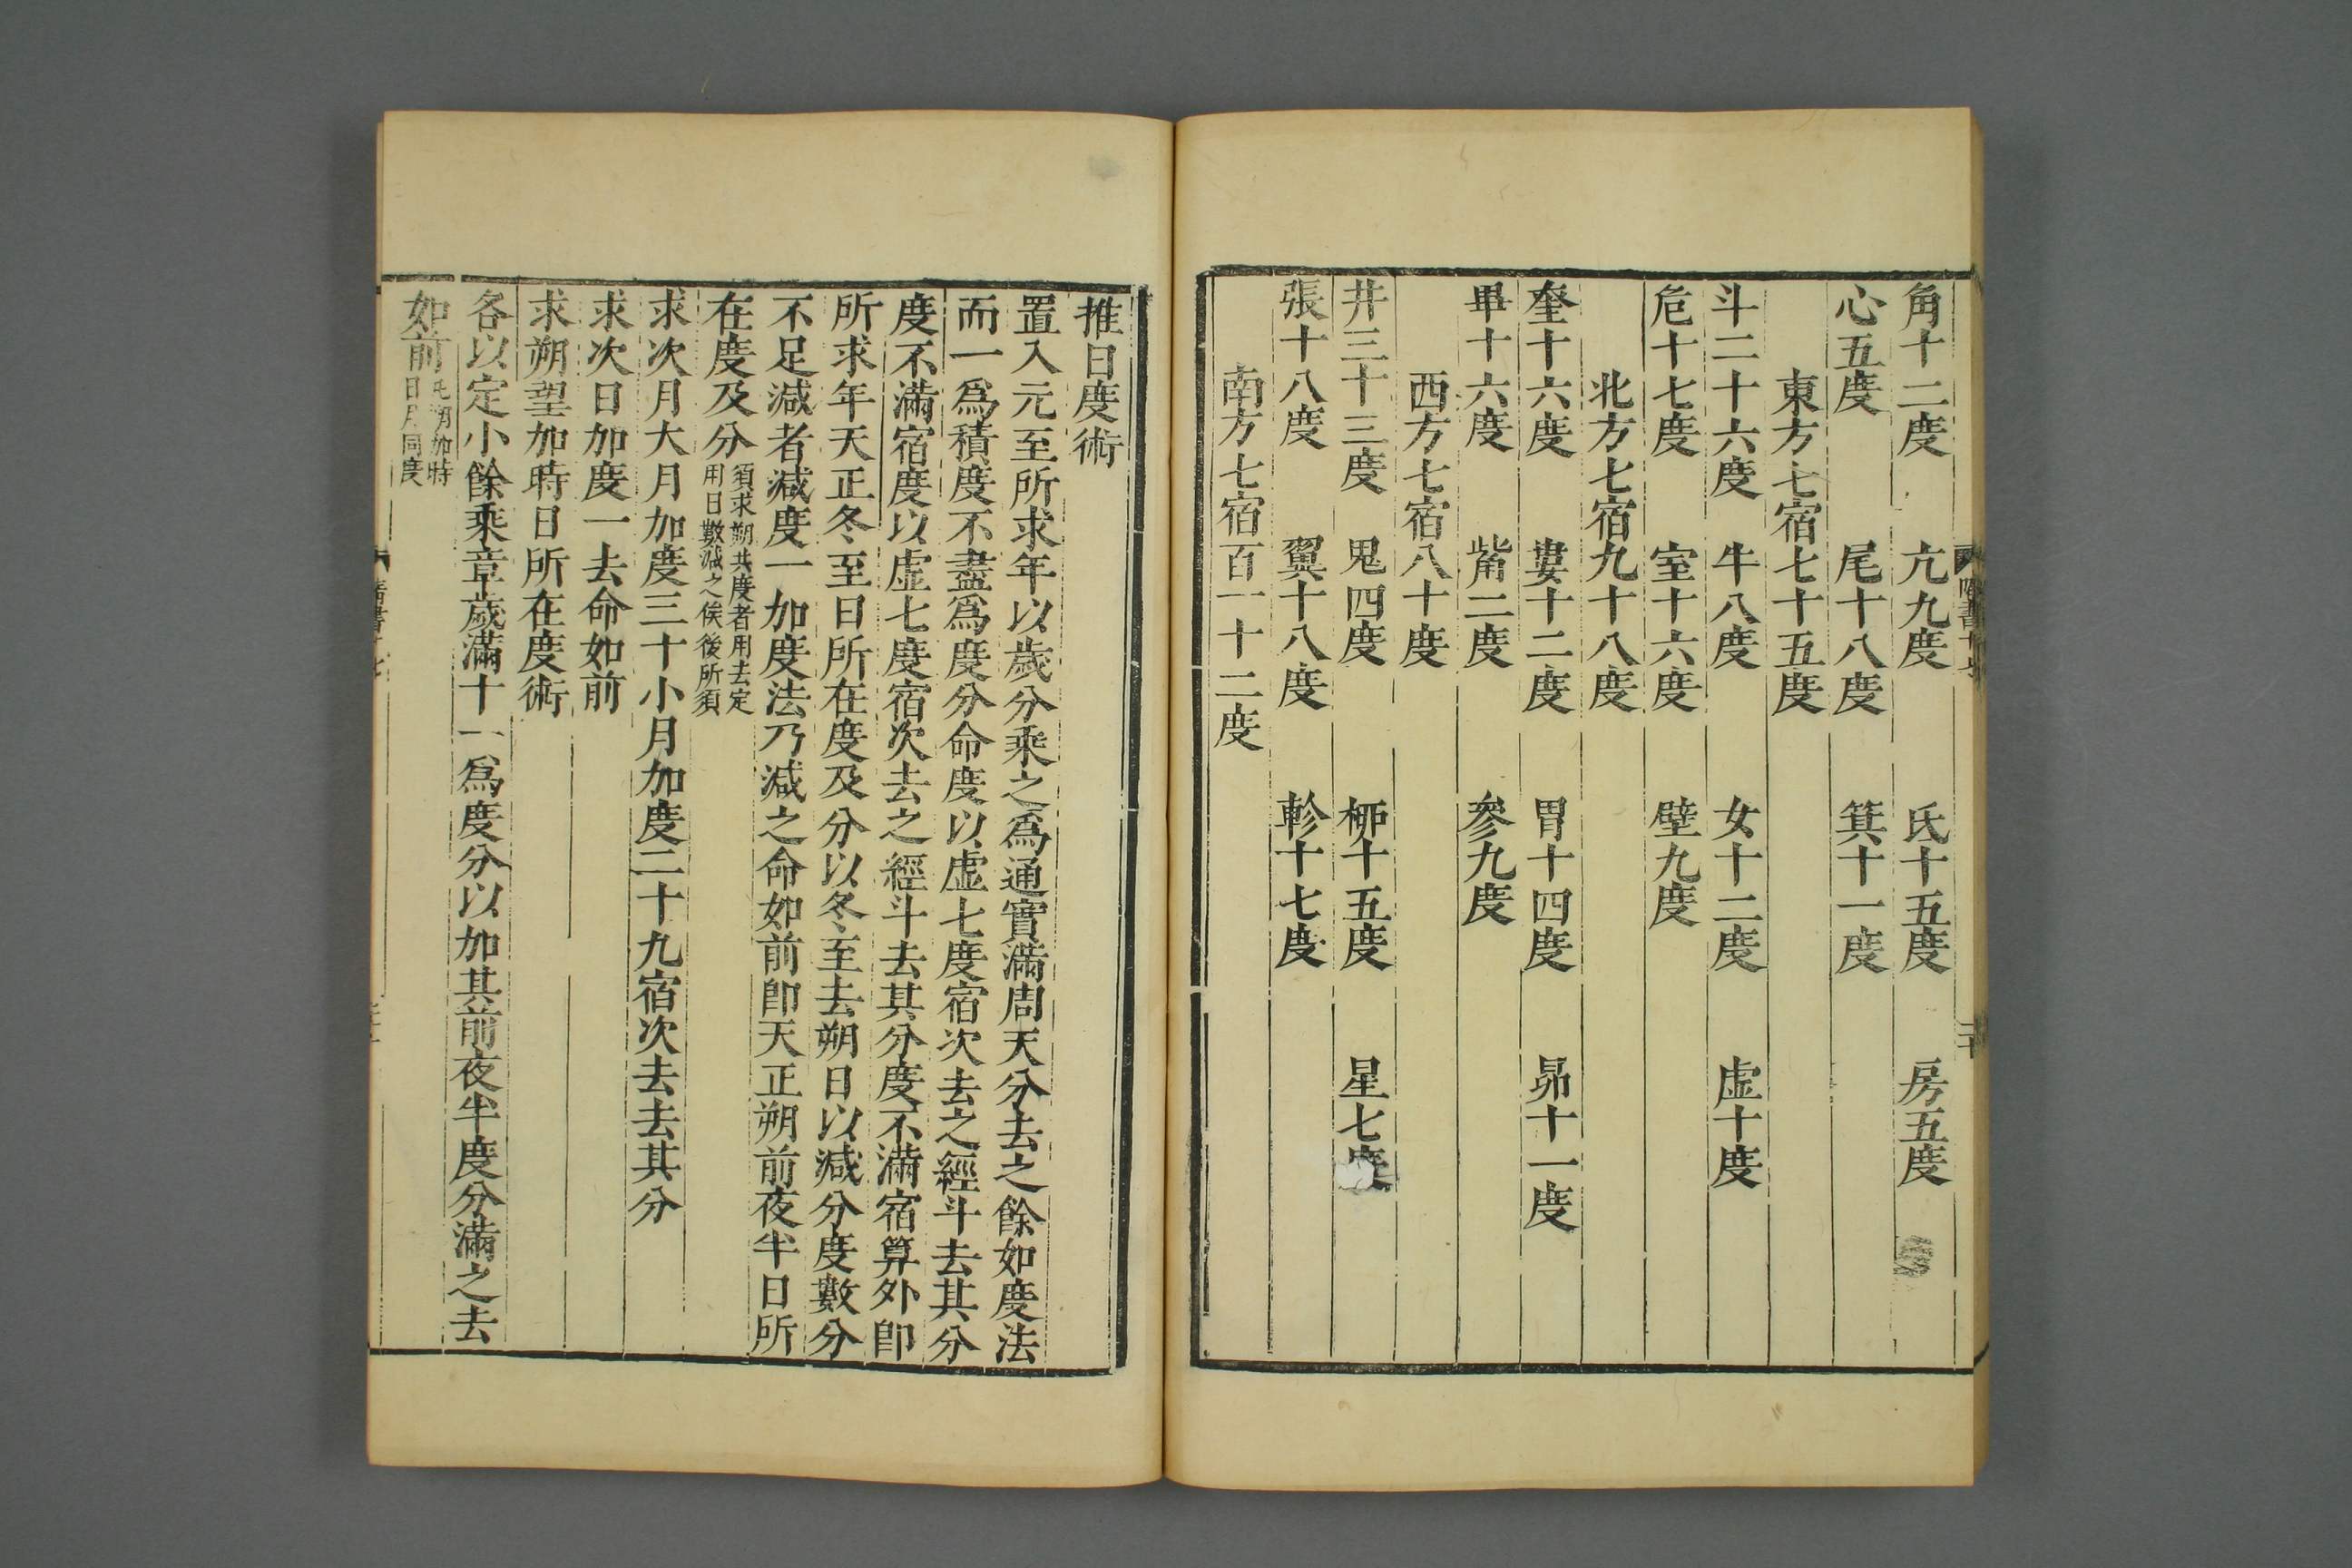 角十二度 亢九度 氐十五度 房五度
心五度 尾十八度 箕十一度
東方七宿七十五度
斗二十六度 牛八度 女十二度 虛十度
危十七度 室十六度 壁九度
北方七宿九十八度
奎十六度 婁十二度 胃十四度 昴十一度
畢十六度 觜二度 參九度
西方七宿八十度
井三十三度 鬼四度 柳十五度 星七度
張十八度 翼十八度 軫十七度
南方七宿百一十二度
推日度術
置入元至所求年以歲分乘之爲通實滿周天分去之餘如度法
而一爲積度不盡爲度分命度以虛七度宿次去之經斗去其分
度不滿宿度以虛七度宿次去之經斗去其分度不滿宿算外卽
所求年天正冬至日所在度及分以冬至去朔日以減分度數分
不足減者減度一加度法乃減之命如前卽天正朔前夜半日所
在度及分須求朔共度者用去定用日數減之俟後所須
求次月大月加度三十小月加度二十九宿次去去其分
求次日加度一去命如前
求朔望加時日所在度術
各以定小餘乘章歲滿十一爲度分以加其前夜半度分滿之去
如前凡朔加時日月同度
隋書十七
二十